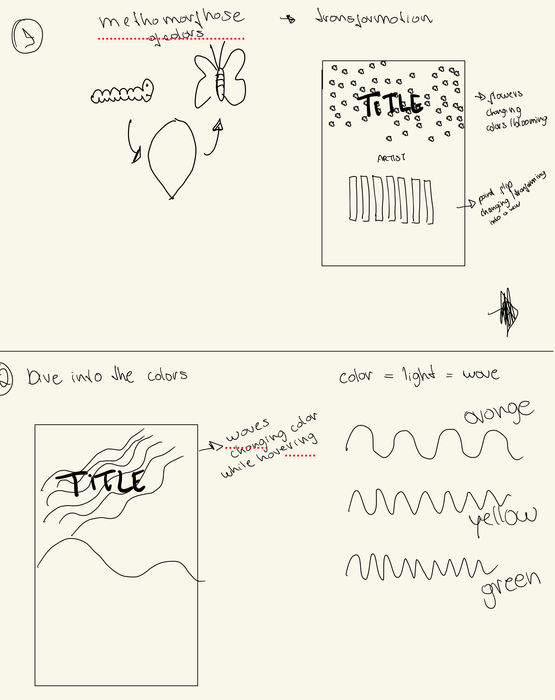 1
methomorphose
of colors
→ transformation
TITLE
→ flowers
changing
colors/blooming
ARTIST
changing/transforming
into a
2 Dive into the colors
color = light = wave
orange
→ waves
changing color
while hovering
TITLE
yellow
green